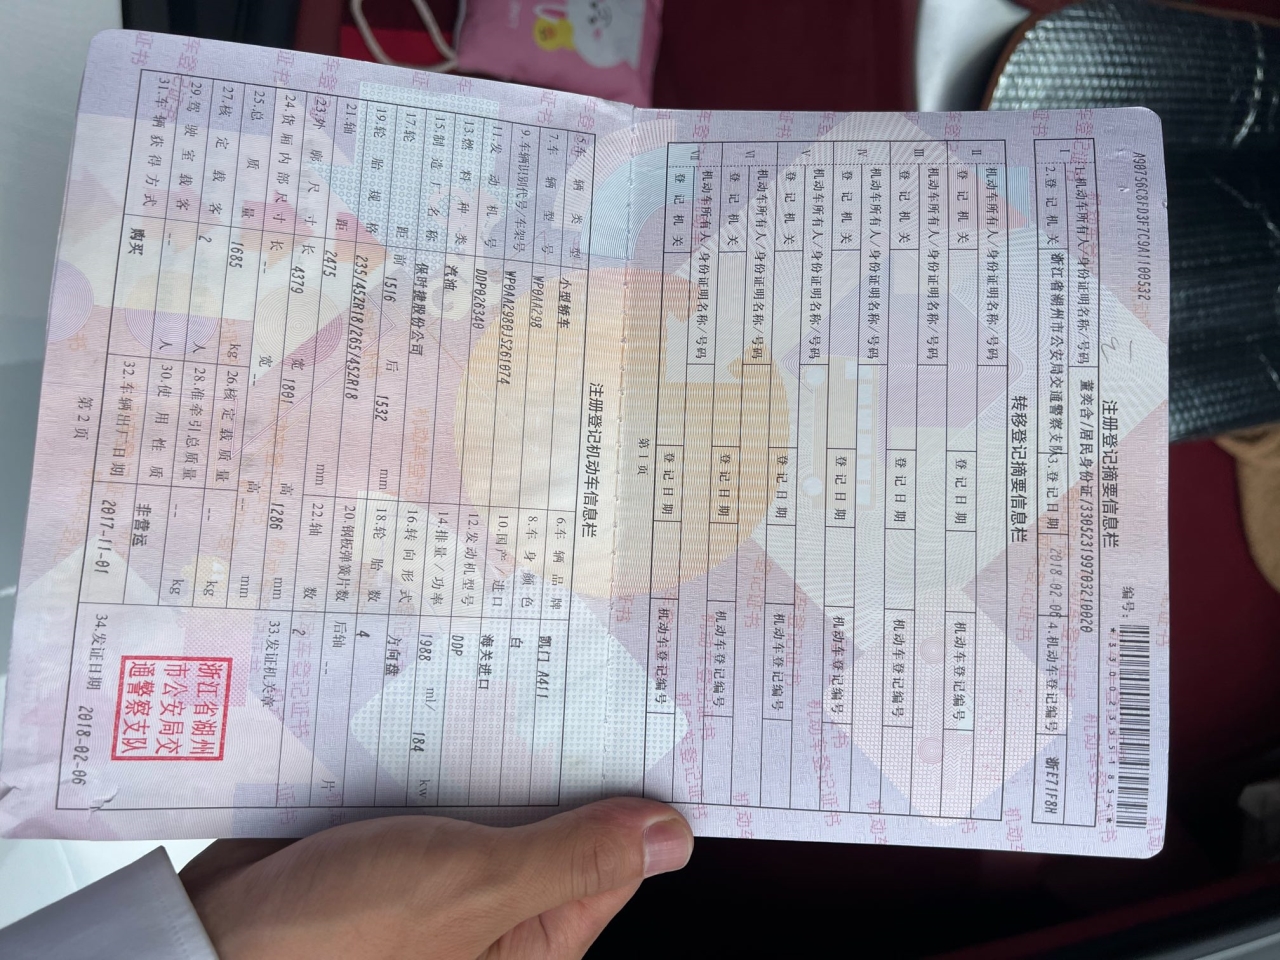 A90756C8FD3F7C9A11100532
编号:
*330023551854*
注册登记摘要信息栏
Ⅰ 1.机动车所有人/身份证明名称/号码 董奕含/居民身份证/330523199703210020
2.登记机关 浙江省湖州市公安局交通警察支队 3.登记日期 2018-02-06 4.机动车登记编号 浙E71F8H
转移登记摘要信息栏
Ⅱ 机动车所有人/身份证明名称/号码
登记机关 登记日期 机动车登记编号
Ⅲ 机动车所有人/身份证明名称/号码
登记机关 登记日期 机动车登记编号
Ⅳ 机动车所有人/身份证明名称/号码
登记机关 登记日期 机动车登记编号
Ⅴ 机动车所有人/身份证明名称/号码
登记机关 登记日期 机动车登记编号
Ⅵ 机动车所有人/身份证明名称/号码
登记机关 登记日期 机动车登记编号
Ⅶ 机动车所有人/身份证明名称/号码
登记机关 登记日期 机动车登记编号
第1页
注册登记机动车信息栏
5.车辆类型 小型轿车 6.车辆品牌 凯门 A411
7.车辆型号 WP0AA298 8.车身颜色 白
9.车辆识别代号/车架号 WP0AA2980JS261074 10.国产/进口 海关进口
11.发动机号 DDP026340 12.发动机型号 DDP
13.燃料种类 汽油 14.排量/功率 1988 ml/ 184 kw
15.制造厂名称 保时捷股份公司 16.转向形式 方向盘
17.轮距 前 1516 后 1532 mm 18.轮胎数 4
19.轮胎规格 235/45ZR18/265/45ZR18 20.钢板弹簧片数 后轴 -- 片
21.轴距 2475 mm 22.轴数 2
23.外廓尺寸 长 4379 宽 1801 高 1286 mm 33.发证机关章
24.货厢内部尺寸 长 -- 宽 -- 高 -- mm
25.总质量 1685 kg 26.核定载质量 -- kg
27.核定载客 2 人 28.准牵引总质量 -- kg
29.驾驶室载客 -- 人 30.使用性质 非营运
31.车辆获得方式 购买 32.车辆出厂日期 2017-11-01 34.发证日期 2018-02-06
浙江省湖州
市公安局交
通警察支队
第2页